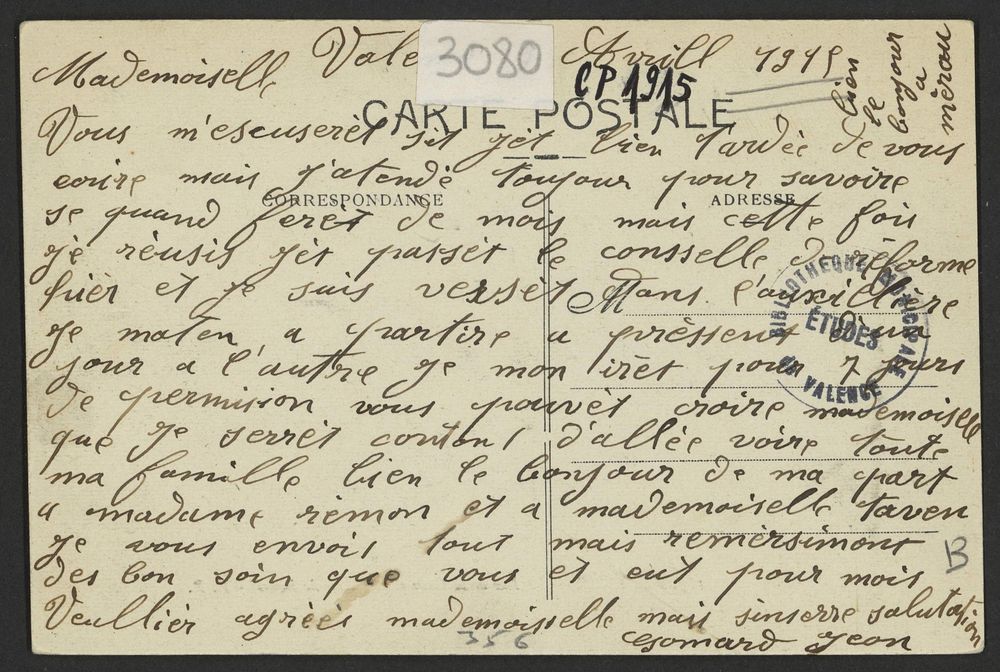 3080
CP 1915
Avrill 1915
Mademoiselle
bien le bonjour a mèrau
CARTE POSTALE
CORRESPONDANCE
ADRESSE
Vous m'escuserèt sit jèt bien tardée de vous
ecrire mais j'atendé toujour pour savoire
se quand ferèt de mois mais cette fois
je réusis jèt passèt le consselle de réforme
hièr et je suis versèt dans l'auxillière
je maten a partire a prèssent d'un
jour a l'autre je mon irèt pour 7 jours
de permision vous pouvèt croire mademoiselle
que je serrèt contant d'allée voire toute
ma famille bien le bonjour de ma part
a madame rémon et a mademoiselle taven
je vous envois tout mais remèrsimont
des bon soin que vous èt eut pour mois
Veullièr agréès mademoisselle mais sinserre salutation
Jean
M
BIBLIOTHÈQUE MUNICIPALE
ÉTUDES
DE VALENCE
B
356